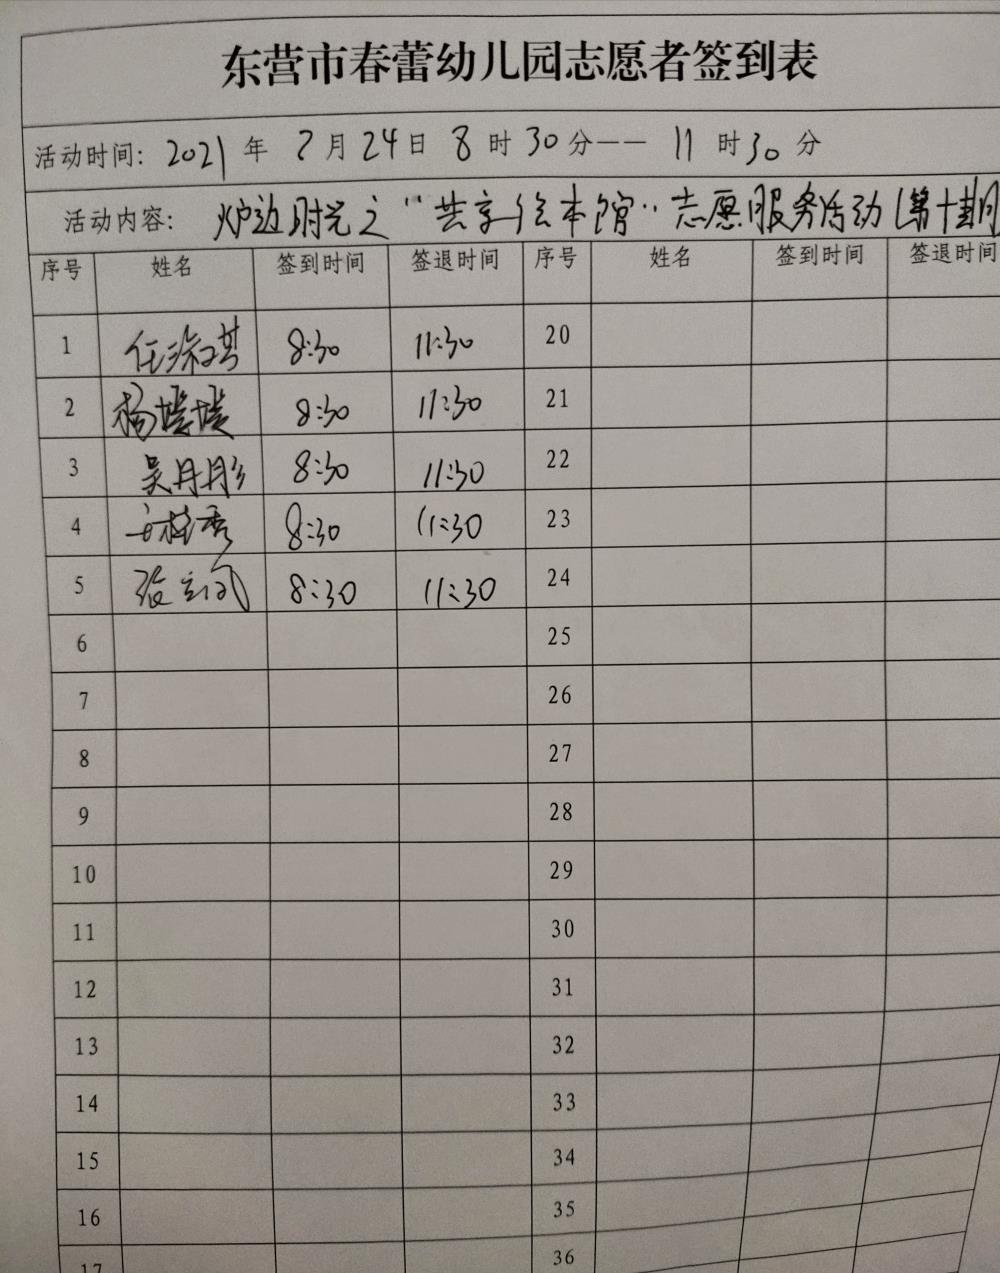 东营市春蕾幼儿园志愿者签到表
活动时间: 2021 年 7 月 24 日 8 时 30 分—— 11 时 30 分
活动内容: 炉边时光之“共享绘本馆”志愿服务活动(第十期
序号 姓名 签到时间 签退时间 序号 姓名 签到时间 签退时间
1 8:30 11:30 20
2 杨 8:30 11:30 21
3 吴丹彤 8:30 11:30 22
4 桂秀 8:30 11:30 23
5 张 8:30 11:30 24
6 25
7 26
8 27
9 28
10 29
11 30
12 31
13 32
14 33
15 34
16 35
17 36